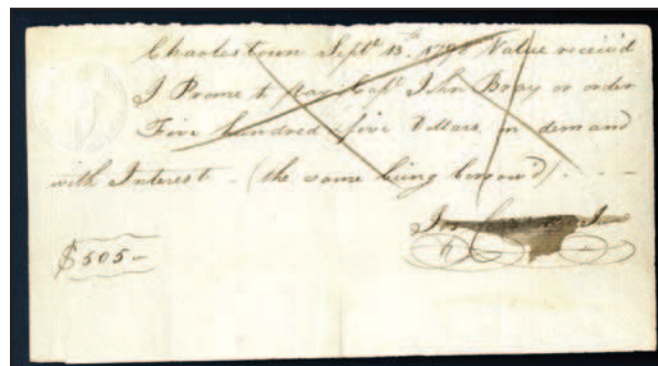 Charlestown Septr 13th 179 Value receiv'd
I Prome to pay Capt John Bray or order
Five hundred & five Dollars on demand
with Interest - (the same being borrow'd) . - -
$505-